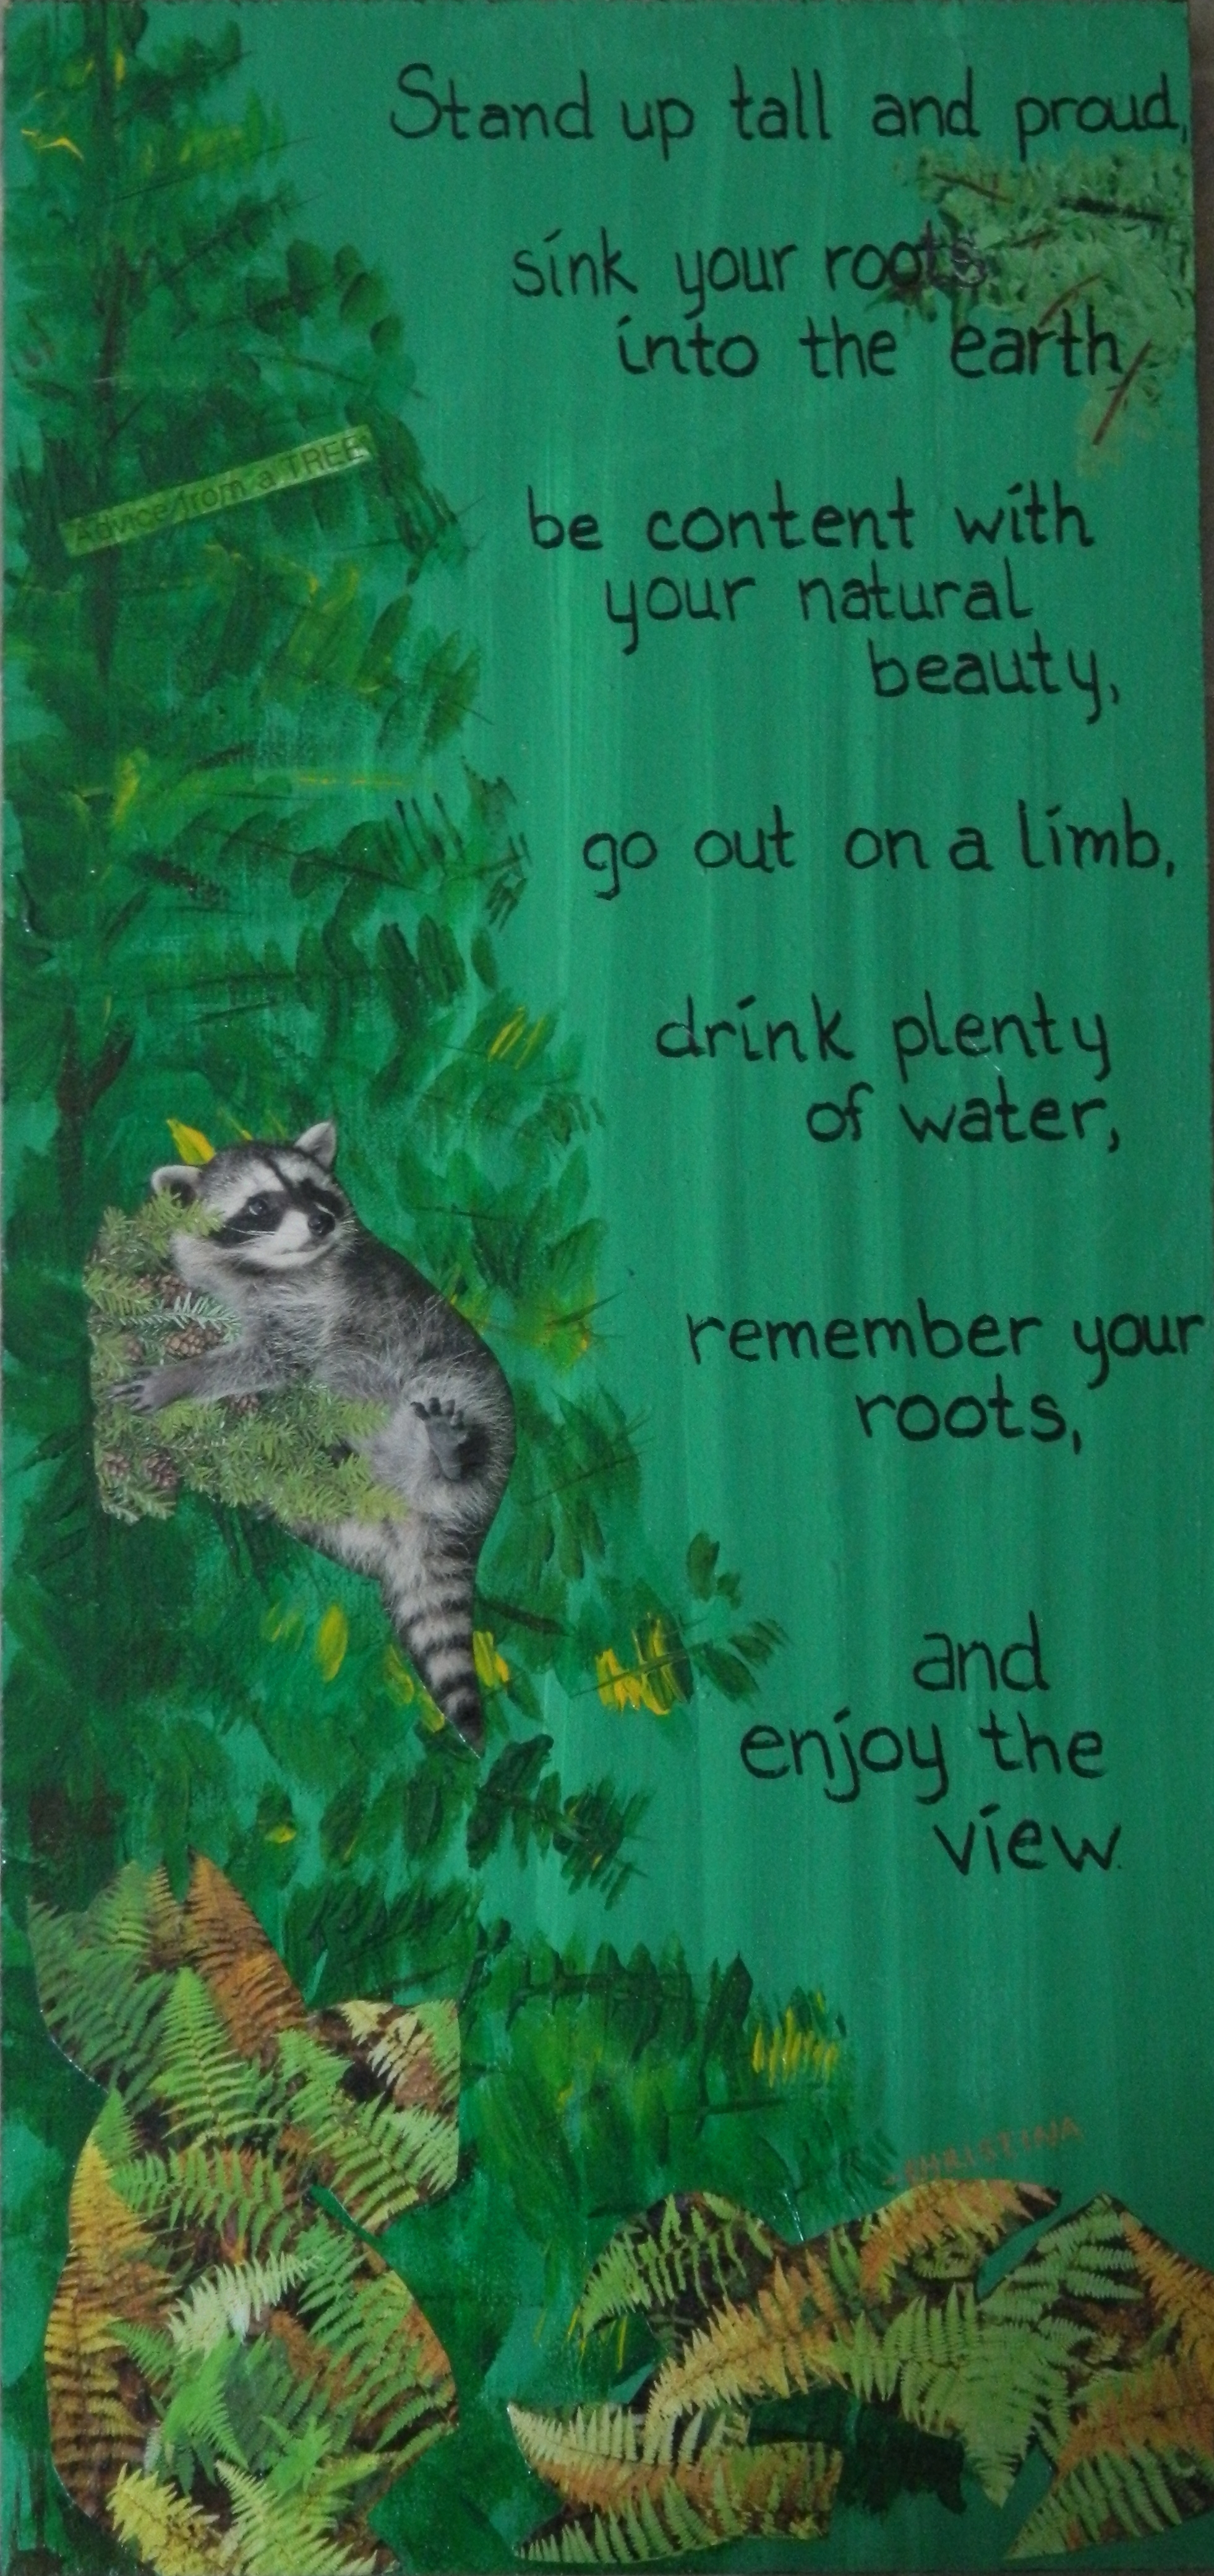 Stand up tall and proud,
sink your roots
into the earth,
Advice from a TREE
be content with
your natural
beauty,
go out on a limb,
drink plenty
of water,
remember your
roots,
and
enjoy the
view.
CHRISTINA